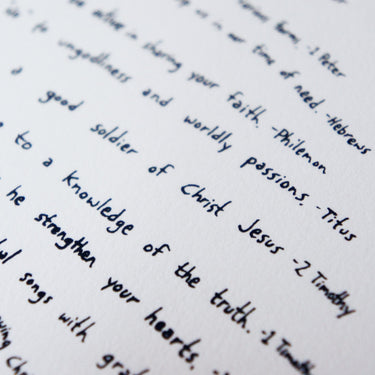 various forms. -1 Peter
us in our time of need. -Hebrews
active in sharing your faith. -Philemon
to ungodliness and worldly passions. -Titus
a good soldier of Christ Jesus -2 Timothy
to a knowledge of the truth. -1 Timothy
he strengthen your hearts.
songs with